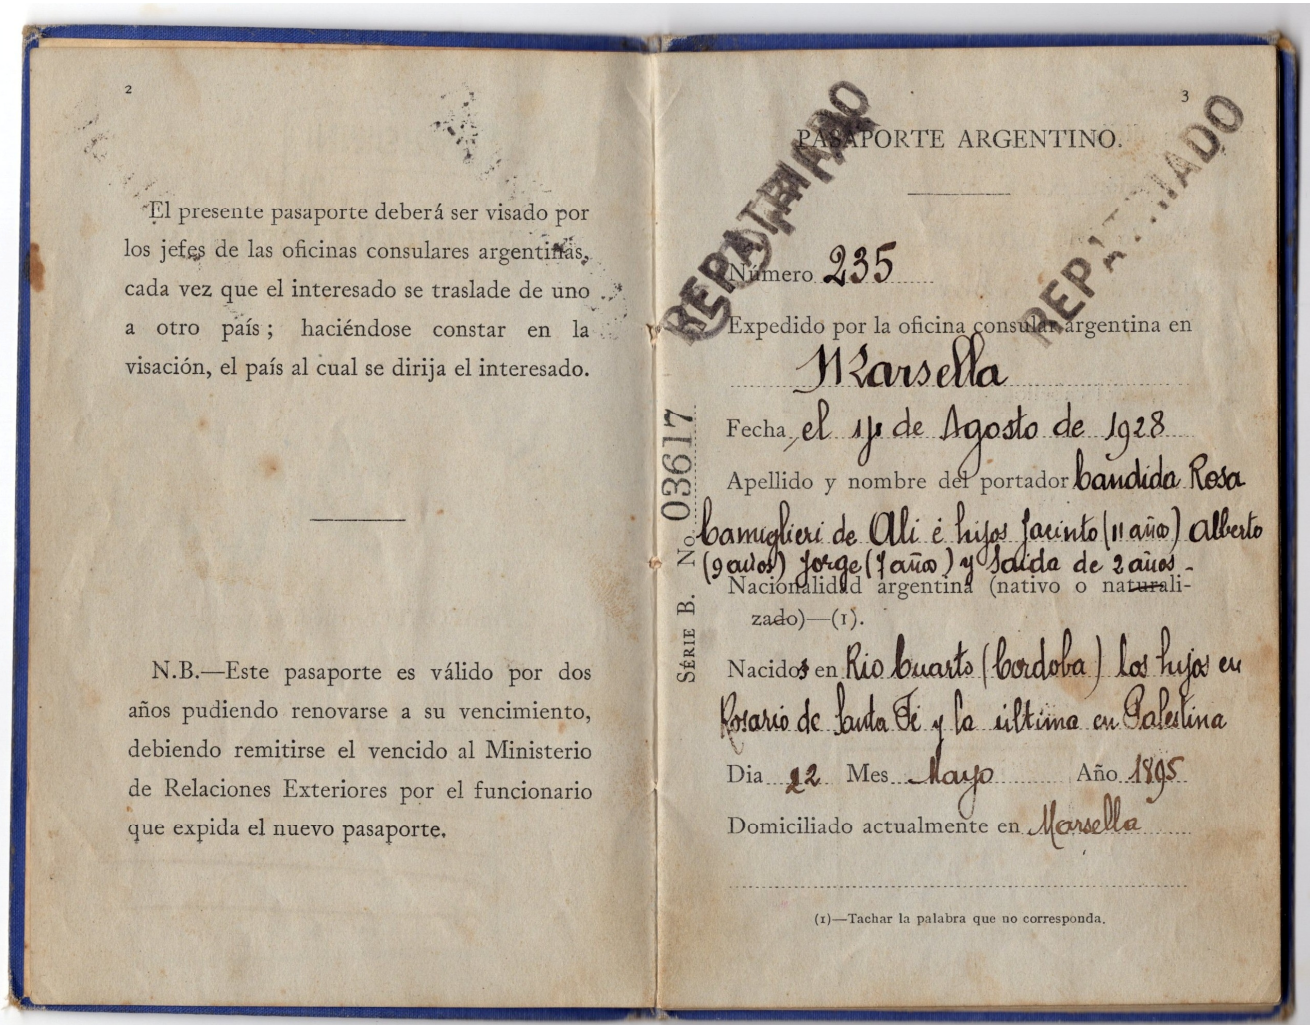 2
El presente pasaporte deberá ser visado por
los jefes de las oficinas consulares argentinas,
cada vez que el interesado se traslade de uno
a otro país ; haciéndose constar en la
visación, el país al cual se dirija el interesado.
N.B.—Este pasaporte es válido por dos
años pudiendo renovarse a su vencimiento,
debiendo remitirse el vencido al Ministerio
de Relaciones Exteriores por el funcionario
que expida el nuevo pasaporte.
3
PASAPORTE ARGENTINO.
REPATRIADO
REPATRIADO
Número 235
Expedido por la oficina consular argentina en
Marsella
Fecha el de Agosto de 1928
Apellido y nombre del portador Candida Rosa
Camiglieri de Ali é hijos Jacinto (11 años) Alberto
(9 años) Jorge (7 años) y Saida de 2 años -
Nacionalidad argentina (nativo o naturali-
zado)—(1).
Nacidos en Rio Cuarto (Cordoba) los hijos en
Rosario de Santa Fé y la última en Palestina
Dia 22 Mes Mayo Año 1895
Domiciliado actualmente en Marsella
(1)—Tachar la palabra que no corresponda.
SÉRIE B. No 03617